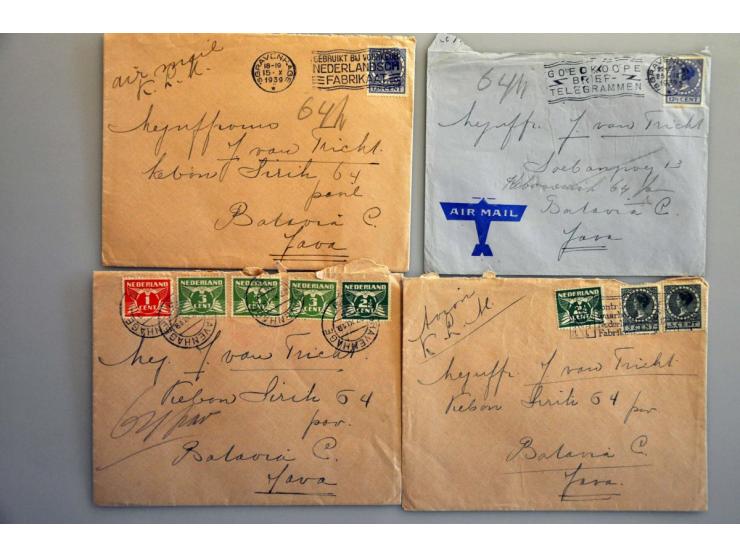 air mail
K. L. M.
'S GRAVENHAGE
18-19
15-X
1939
GEBRUIKT BIJ VOORKEUR
NEDERLANDSCH
FABRIKAAT
12½ CENT
64 h
Mejuffrouw
J van Tricht
Kebon Sirih 64
pav
Batavia C.
Java
64 h
GOEDKOOPE
BRIEF-
TELEGRAMMEN
12½ CENT
Mejuffr. J van Tricht
13
64 pav
Batavia C.
Java
AIR MAIL
NEDERLAND
1
CENT
NEDERLAND
3
CENT
NEDERLAND
CENT
NEDERLAND
3
CENT
NEDERLAND
CENT
Mej. J. van Tricht
Kebon Sirih 64
pav.
64 pav
Batavia C.
Java
K. L. M.
NEDERLAND
CENT
CENT
CENT
Mejuffr. J van Tricht
Kebon Sirih 64 pav
Batavia C.
Java.